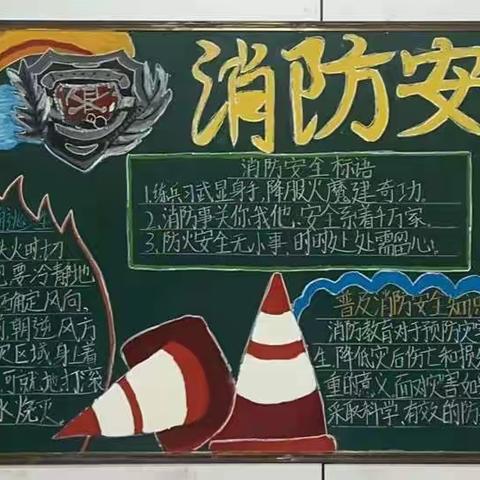 消防安
消防安全标语
1.练兵习武显身手,降服火魔建奇功。
2.消防事关你我他,安全系着千万家。
3.防火安全无小事,时时处处需留心。
火时切
要冷静地
确定风向,
朝逆风方
灾区域。身着
可就地打滚
水烧灭
普及消防安全知识
消防教育对于预防灾
生,降低灾后伤亡和损
重的意义,面对灾害如
采取科学,有效的防